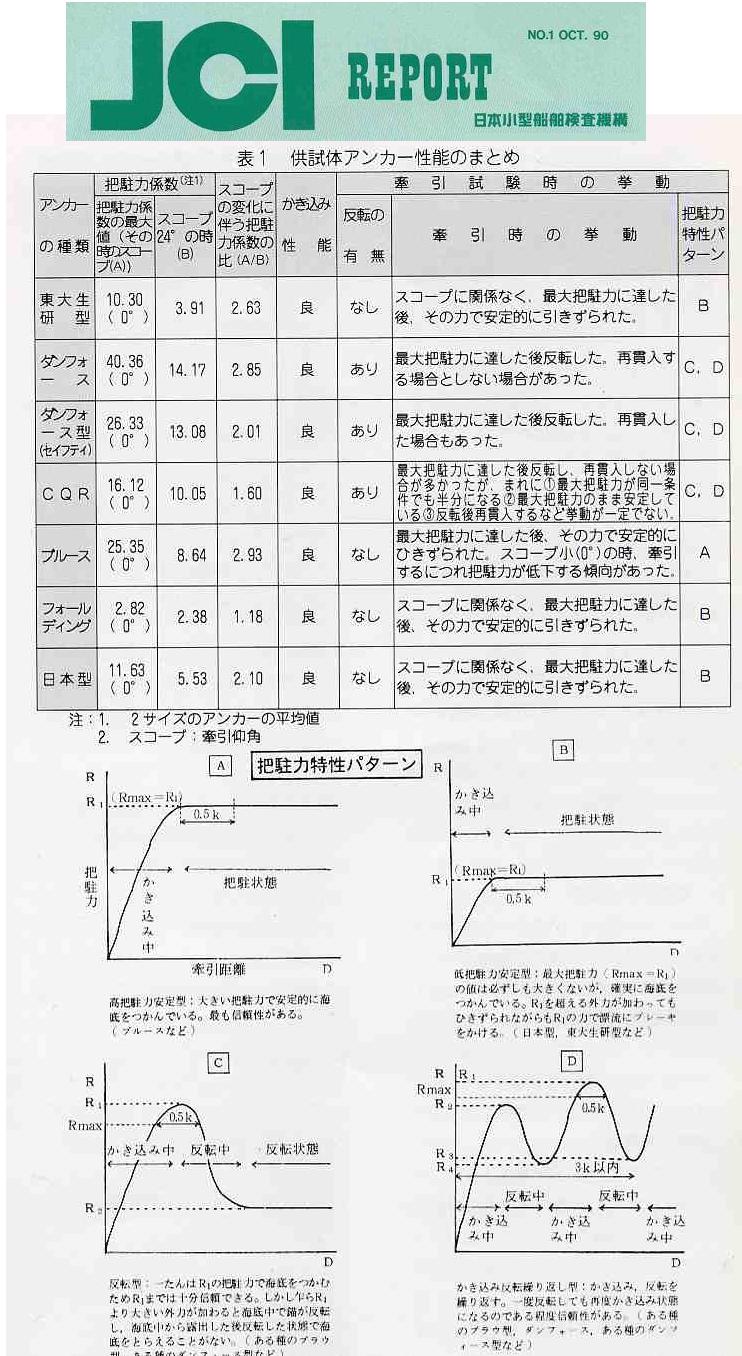 JCI REPORT
NO.1 OCT. 90
日本小型船舶検査機構
表1 供試体アンカー性能のまとめ
アンカーの種類
把駐力係数(注1)
把駐力係数の最大値(その時のスコープ(A))
スコープ24°の時(B)
スコープの変化に伴う把駐力係数の比(A/B)
かき込み性能
牽引試験時の挙動
反転の有無
牽引時の挙動
把駐力特性パターン
東大生研型 10.30(0°) 3.91 2.63 良 なし スコープに関係なく、最大把駐力に達した後、その力で安定的に引きずられた。 B
ダンフォース 40.36(0°) 14.17 2.85 良 あり 最大把駐力に達した後反転した。再貫入する場合としない場合があった。 C, D
ダンフォース型(セイフティ) 26.33(0°) 13.08 2.01 良 あり 最大把駐力に達した後反転した。再貫入した場合もあった。 C, D
CQR 16.12(0°) 10.05 1.60 良 あり 最大把駐力に達した後反転し、再貫入しない場合が多かったが、まれに①最大把駐力が同一条件でも半分になる②最大把駐力のまま安定している③反転後再貫入するなど挙動が一定でない。 C, D
ブルース 25.35(0°) 8.64 2.93 良 なし 最大把駐力に達した後、その力で安定的にひきずられた。スコープ小(0°)の時、牽引するにつれ把駐力が低下する傾向があった。 A
フォールディング 2.82(0°) 2.38 1.18 良 なし スコープに関係なく、最大把駐力に達した後、その力で安定的に引きずられた。 B
日本型 11.63(0°) 5.53 2.10 良 なし スコープに関係なく、最大把駐力に達した後、その力で安定的に引きずられた。 B
注:1. 2サイズのアンカーの平均値
2. スコープ:牽引仰角
把駐力特性パターン
A
R
R1 (Rmax=R1)
0.5k
把駐力
かき込み中
把駐状態
牽引距離 D
高把駐力安定型:大きい把駐力で安定的に海
底をつかんでいる。最も信頼性がある。
(ブルースなど)
B
R
かき込み中
把駐状態
R1 (Rmax=R1)
0.5k
D
低把駐力安定型:最大把駐力(Rmax=R1)
の値は必ずしも大きくないが、確実に海底を
つかんでいる。R1を超える外力が加わっても
ひきずられながらもR1の力で漂流にブレーキ
をかける。(日本型,東大生研型など)
C
R
R1
Rmax
0.5k
かき込み中 反転中 反転状態
R2
D
反転型:一たんはR1の把駐力で海底をつかむ
ためR1までは十分信頼できる。しかし乍らR1
より大きい外力が加わると海底中で錨が反転
し,海底中から露出した後反転した状態で海
底をとらえることがない。(ある種のプラウ
型,ある種のダンフォース型など)
D
R R1
Rmax
R2
0.5k
R3
R4
3k以内
反転中 反転中
かき込み中 かき込み中 かき込み中
D
かき込み反転繰り返し型:かき込み,反転を
繰り返す。一度反転しても再度かき込み状態
になるのである程度信頼性がある。(ある種
のプラウ型,ダンフォース,ある種のダンフ
ォース型など)